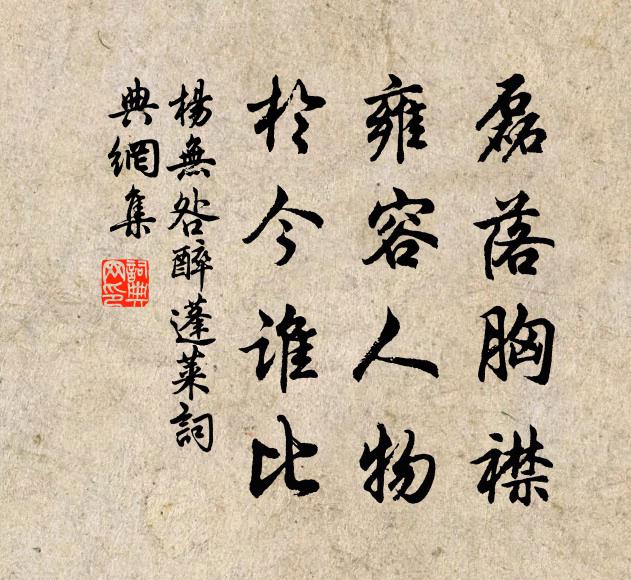 磊落胸襟
雍容人物
於今谁比
楊無咎醉蓬莱詞
典網集
詞典
网印